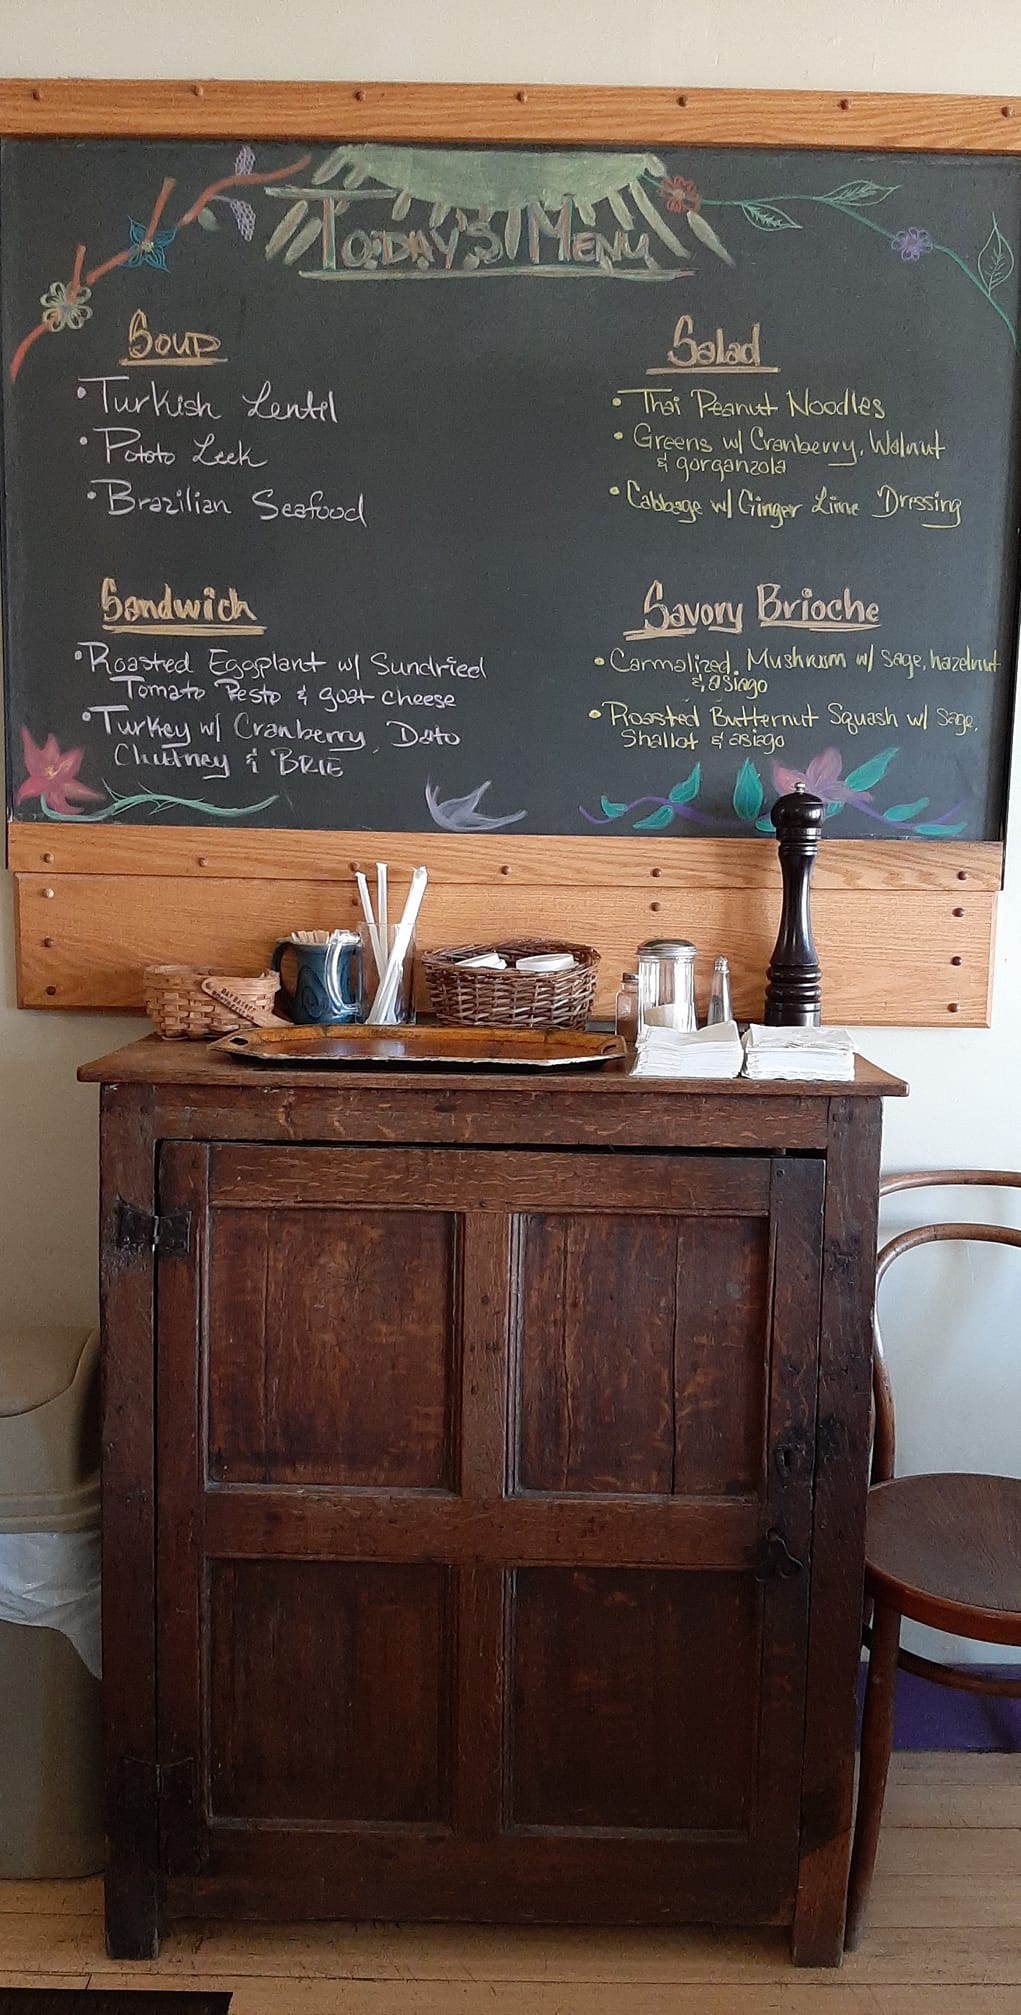 TODAY'S MENU
Soup
• Turkish Lentil
• Pototo Leek
• Brazilian Seafood
Salad
• Thai Peanut Noodles
• Greens w/ Cranberry, Walnut
& gorganzola
• Cabbage w/ Ginger Lime Dressing
Sandwich
• Roasted Eggplant w/ Sundried
Tomato Pesto & goat cheese
• Turkey w/ Cranberry, Date
Chutney & BRIE
Savory Brioche
• Carmalized Mushroom w/ sage, hazelnut
& asiago
• Roasted Butternut Squash w/ sage,
Shallot & asiago